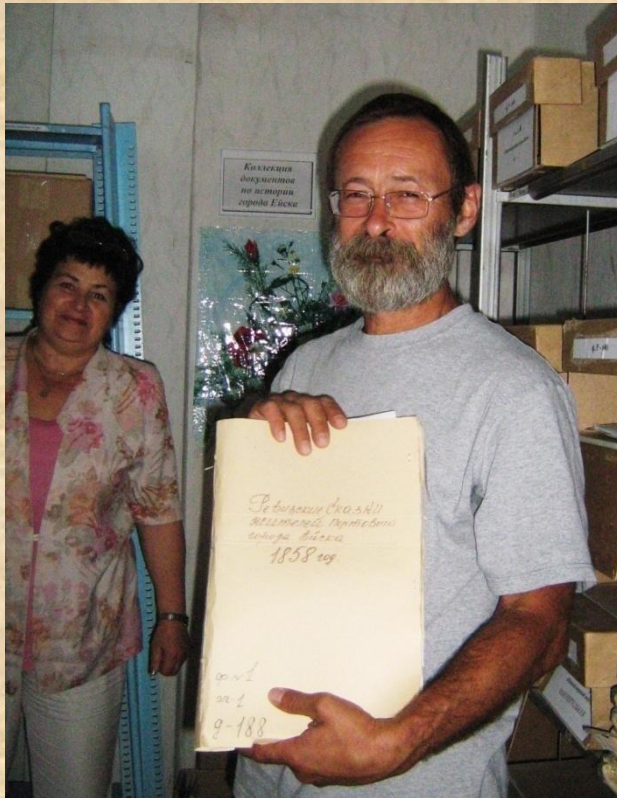 Коллекция
документов
по истории
города Ейска
Ревизские Сказки
жителей портового
города Ейска
1858 год.
ф №1
оп-1
д-188